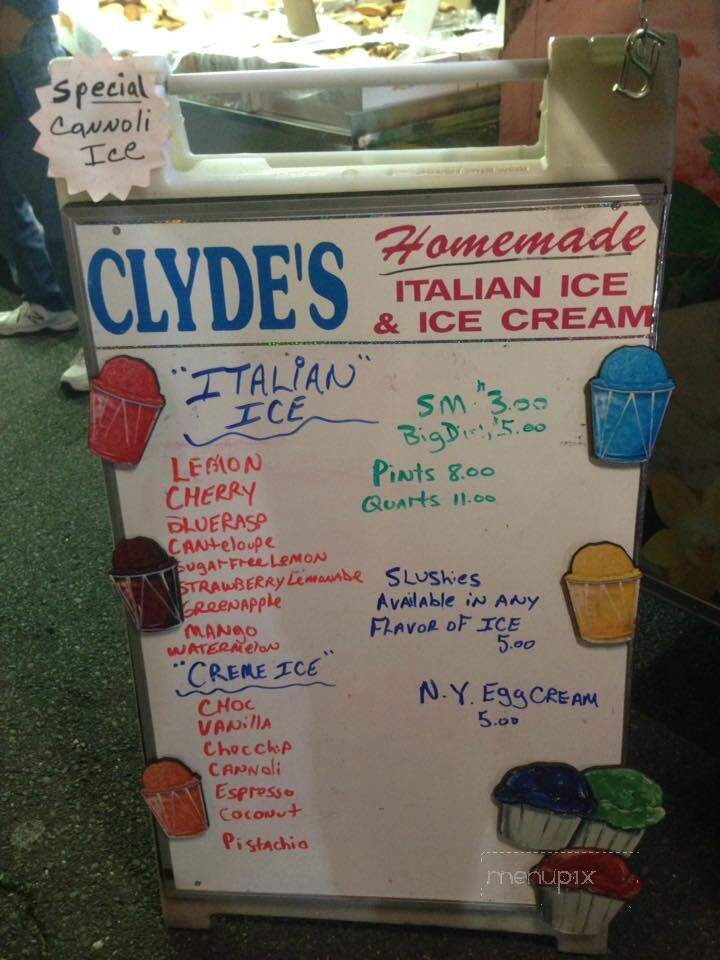 Special
Cannoli
Ice
CLYDE'S
Homemade
ITALIAN ICE
& ICE CREAM
"ITALIAN"
ICE
SM $3.00
Big $5.00
Pints 8.00
Quarts 11.00
LEMON
CHERRY
BLUERASP
CANteloupe
Sugar Free LEMON
STRAWBERRY Lemonade
GREENAPPLE
MANgo
WATERMelon
Slushies
Available in ANY
FLAVOR OF ICE
5.00
"CREME ICE"
CHOC
VANillA
ChoccHiP
CANNOLi
Espresso
Coconut
Pistachio
N.Y. Egg CREAM
5.00
menupix